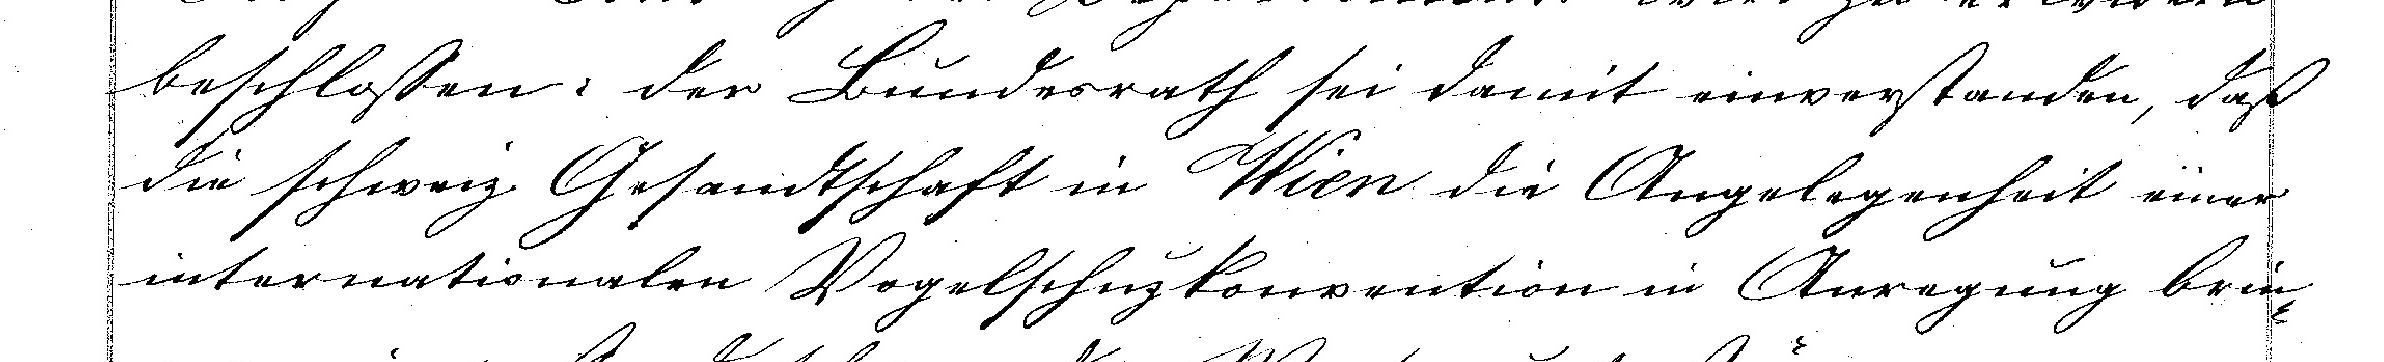 beschlossen: der Bundesrath sei damit einverstanden, daß
die schweiz. Gesandtschaft in Wien die Angelegenheit einer
internationalen Vogelschuzkonvention in Anregung brin-